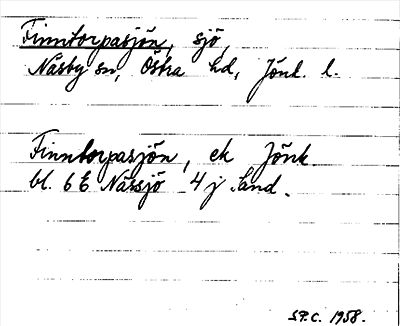 Finntorpasjön, sjö,
Näsby sn, Östra hd, Jönk. l.
Finntorpasjön, ek Jönk.
bl. 6 E Nässjö 4 j Sand.
1958.